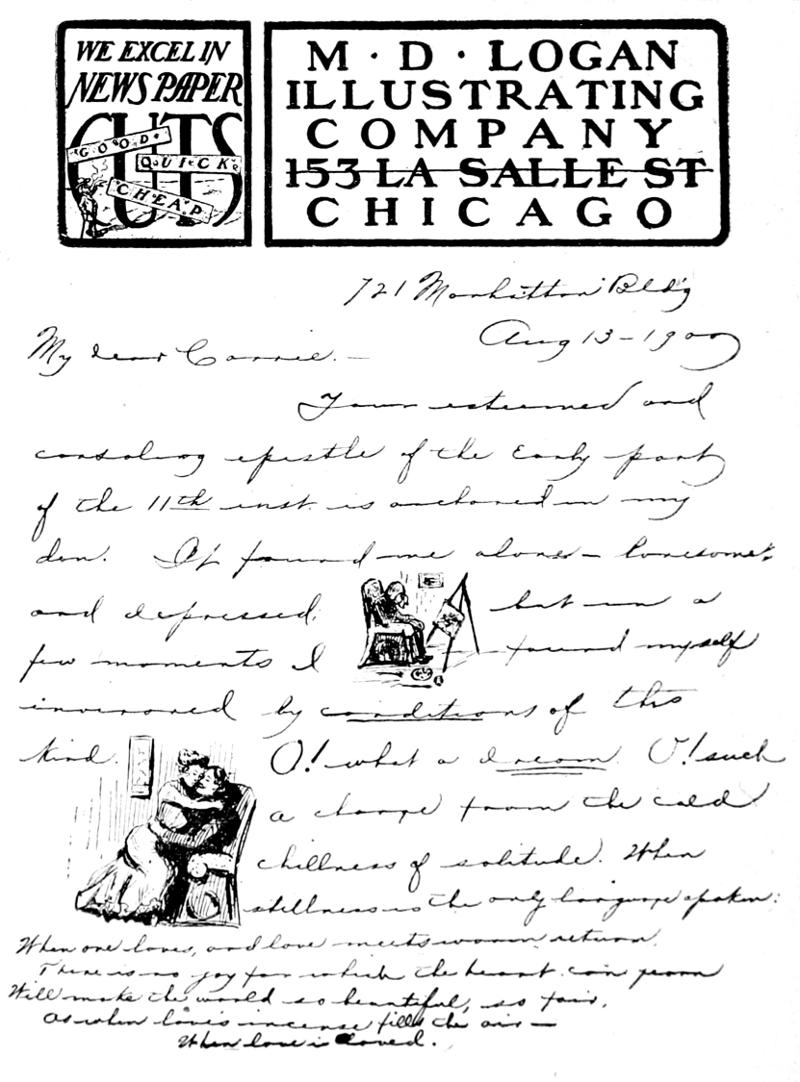 WE EXCEL IN
NEWSPAPER
CUTS
GOOD
QUICK
CHEAP
M · D · LOGAN
ILLUSTRATING
COMPANY
153 LA SALLE ST
CHICAGO
721 Manhattan Bldg
Aug 13 - 1900
My dear Carrie. —
Your esteemed and
consoling epistle of the Early part
of the 11th inst. is anchored in my
den. It found me alone - lonesome
and depressed, but in a
few moments I found myself
by conditions of this
kind. O! what a dream. O! such
a change from the cold
chillness of solitude. When
stillness is the only language spoken:
When one loves, and love meets warm return.
There is no joy for which the heart can yearn
Will make the world so beautiful, so fair,
As when love's incense fills the air —
When love is loved.